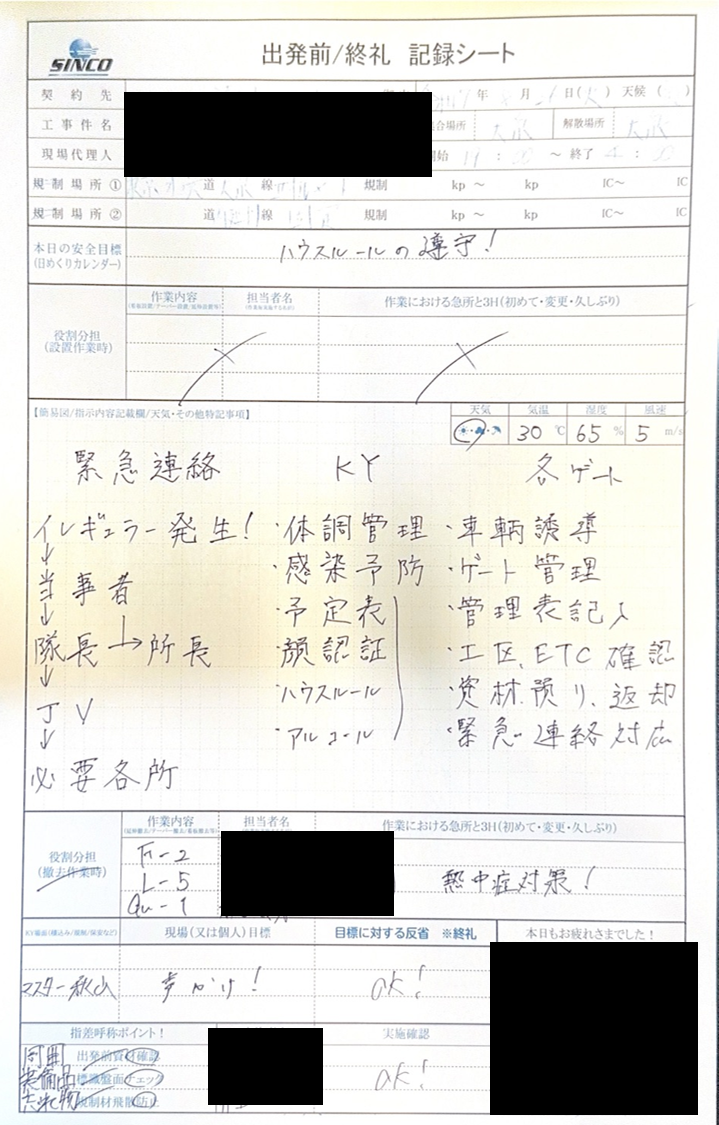 SINCO
出発前/終礼 記録シート
契約先 年 月 日( ) 天候( )
工事件名 集合場所 大泉 解散場所 大泉
現場代理人 開始 : 00 ～ 終了 :
規制場所① 道 線 規制 kp ～ kp IC～ IC
規制場所② 道 線 規制 kp ～ kp IC～ IC
本日の安全目標
(日めくりカレンダー)
ハウスルールの遵守!
役割分担
(設置作業時)
作業内容 担当者名 作業における急所と3H(初めて・変更・久しぶり)
【簡易図/指示内容記載欄/天気・その他特記事項】
天気 気温 湿度 風速
30 ℃ 65 % 5 m/s
緊急連絡 KY 各ゲート
イレギュラー発生! ・体調管理 ・車輌誘導
↓ ・感染予防 ・ゲート管理
当事者 ・予定表 ・管理表記入
↓
隊長→所長 ・顔認証 ・工区、ETC確認
↓ ・ハウスルール ・資材預り、返却
JV ・アルコール ・緊急連絡対応
↓
必要各所
役割分担
(撤去作業時)
作業内容 担当者名 作業における急所と3H(初めて・変更・久しぶり)
L-5
熱中症対策!
現場(又は個人)目標 目標に対する反省 ※終礼 本日もお疲れさまでした!
マスター秋山 声かけ! OK!
指差呼称ポイント! 実施確認
周囲 出発前資材確認
装備品 標識盤面チェック OK!
忘れ物 規制材飛散防止